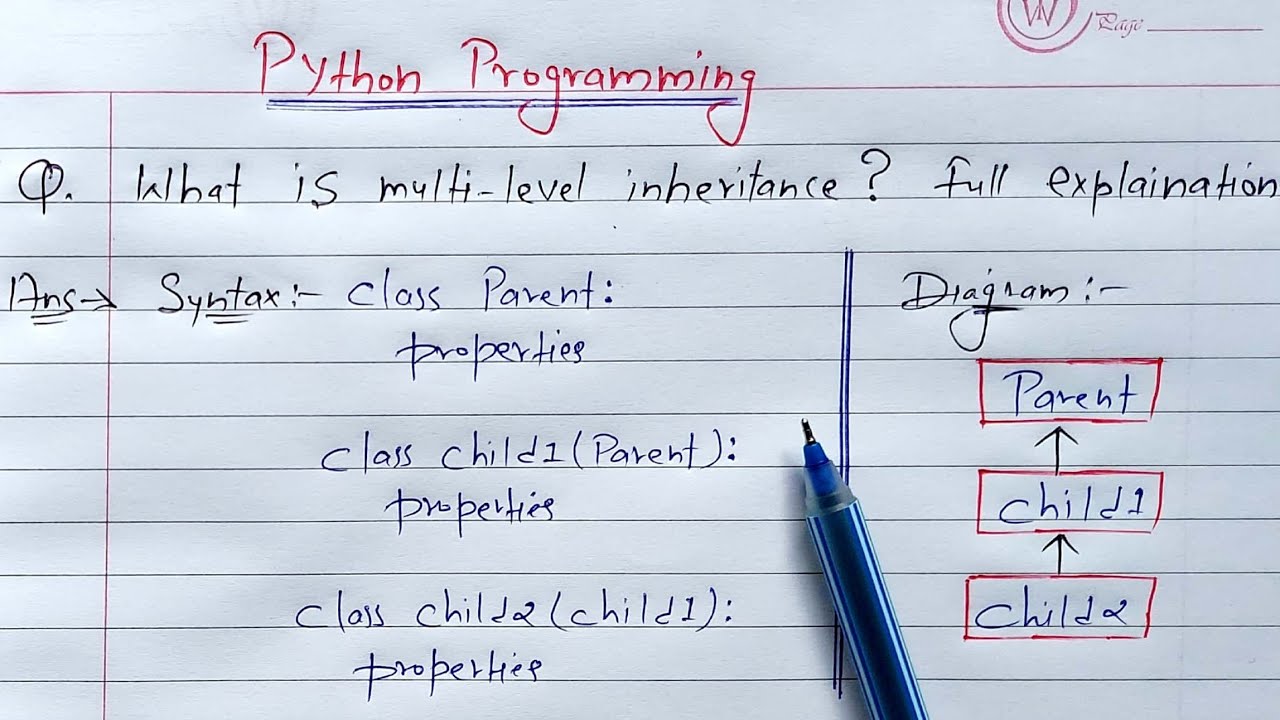 VN
Page
Python Programming
Q. What is multi-level inheritance? full explaination
Ans→ Syntax:- class Parent:
properties
class child1(Parent):
properties
class child2(child1):
properties
Diagram:-
Parent
child1
child2